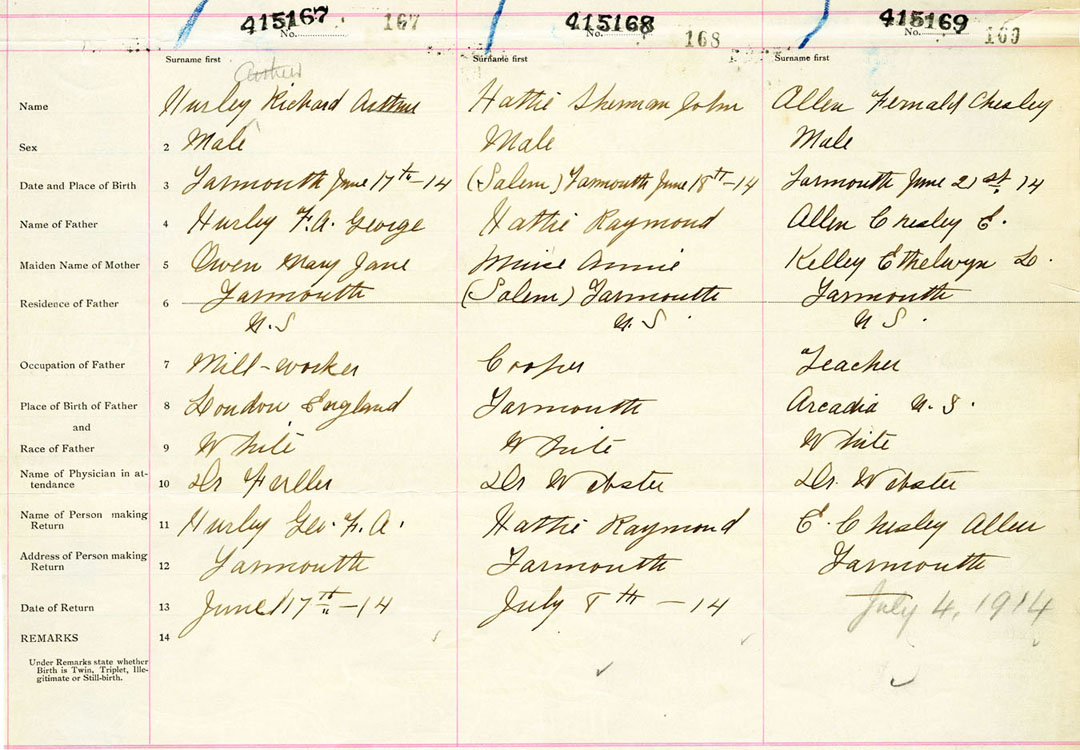 415167 167 415168 168 415169 169
No. No. No.
Surname first Surname first Surname first
Arthur
Name Hurley Richard Arthur Hattie Sherman John Allen Fernald Chesley
Sex 2 Male Male Male
Date and Place of Birth 3 Yarmouth June 17th-14 (Salem) Yarmouth June 18th-14 Yarmouth June 21st. 14
Name of Father 4 Hurley F.A. George Hattie Raymond Allen Chesley E.
Maiden Name of Mother 5 Owen Mary Jane Muise Annie Kelley Ethelwyn L.
Residence of Father 6 Yarmouth (Salem) Yarmouth Yarmouth
N.S N.S. N S.
Occupation of Father 7 Mill-worker Cooper Teacher
Place of Birth of Father 8 London England Yarmouth Arcadia N.S.
and
Race of Father 9 White White White
Name of Physician in at-
tendance 10 Dr Dr Webster Dr. Webster
Name of Person making
Return 11 Hurley Geo. F.A. Hattie Raymond E. Chesley Allen
Address of Person making
Return 12 Yarmouth Yarmouth Yarmouth
Date of Return 13 June 17th-14 July 8th-14 July 4, 1914
REMARKS 14
Under Remarks state whether
Birth is Twin, Triplet, Ille-
gitimate or Still-birth.